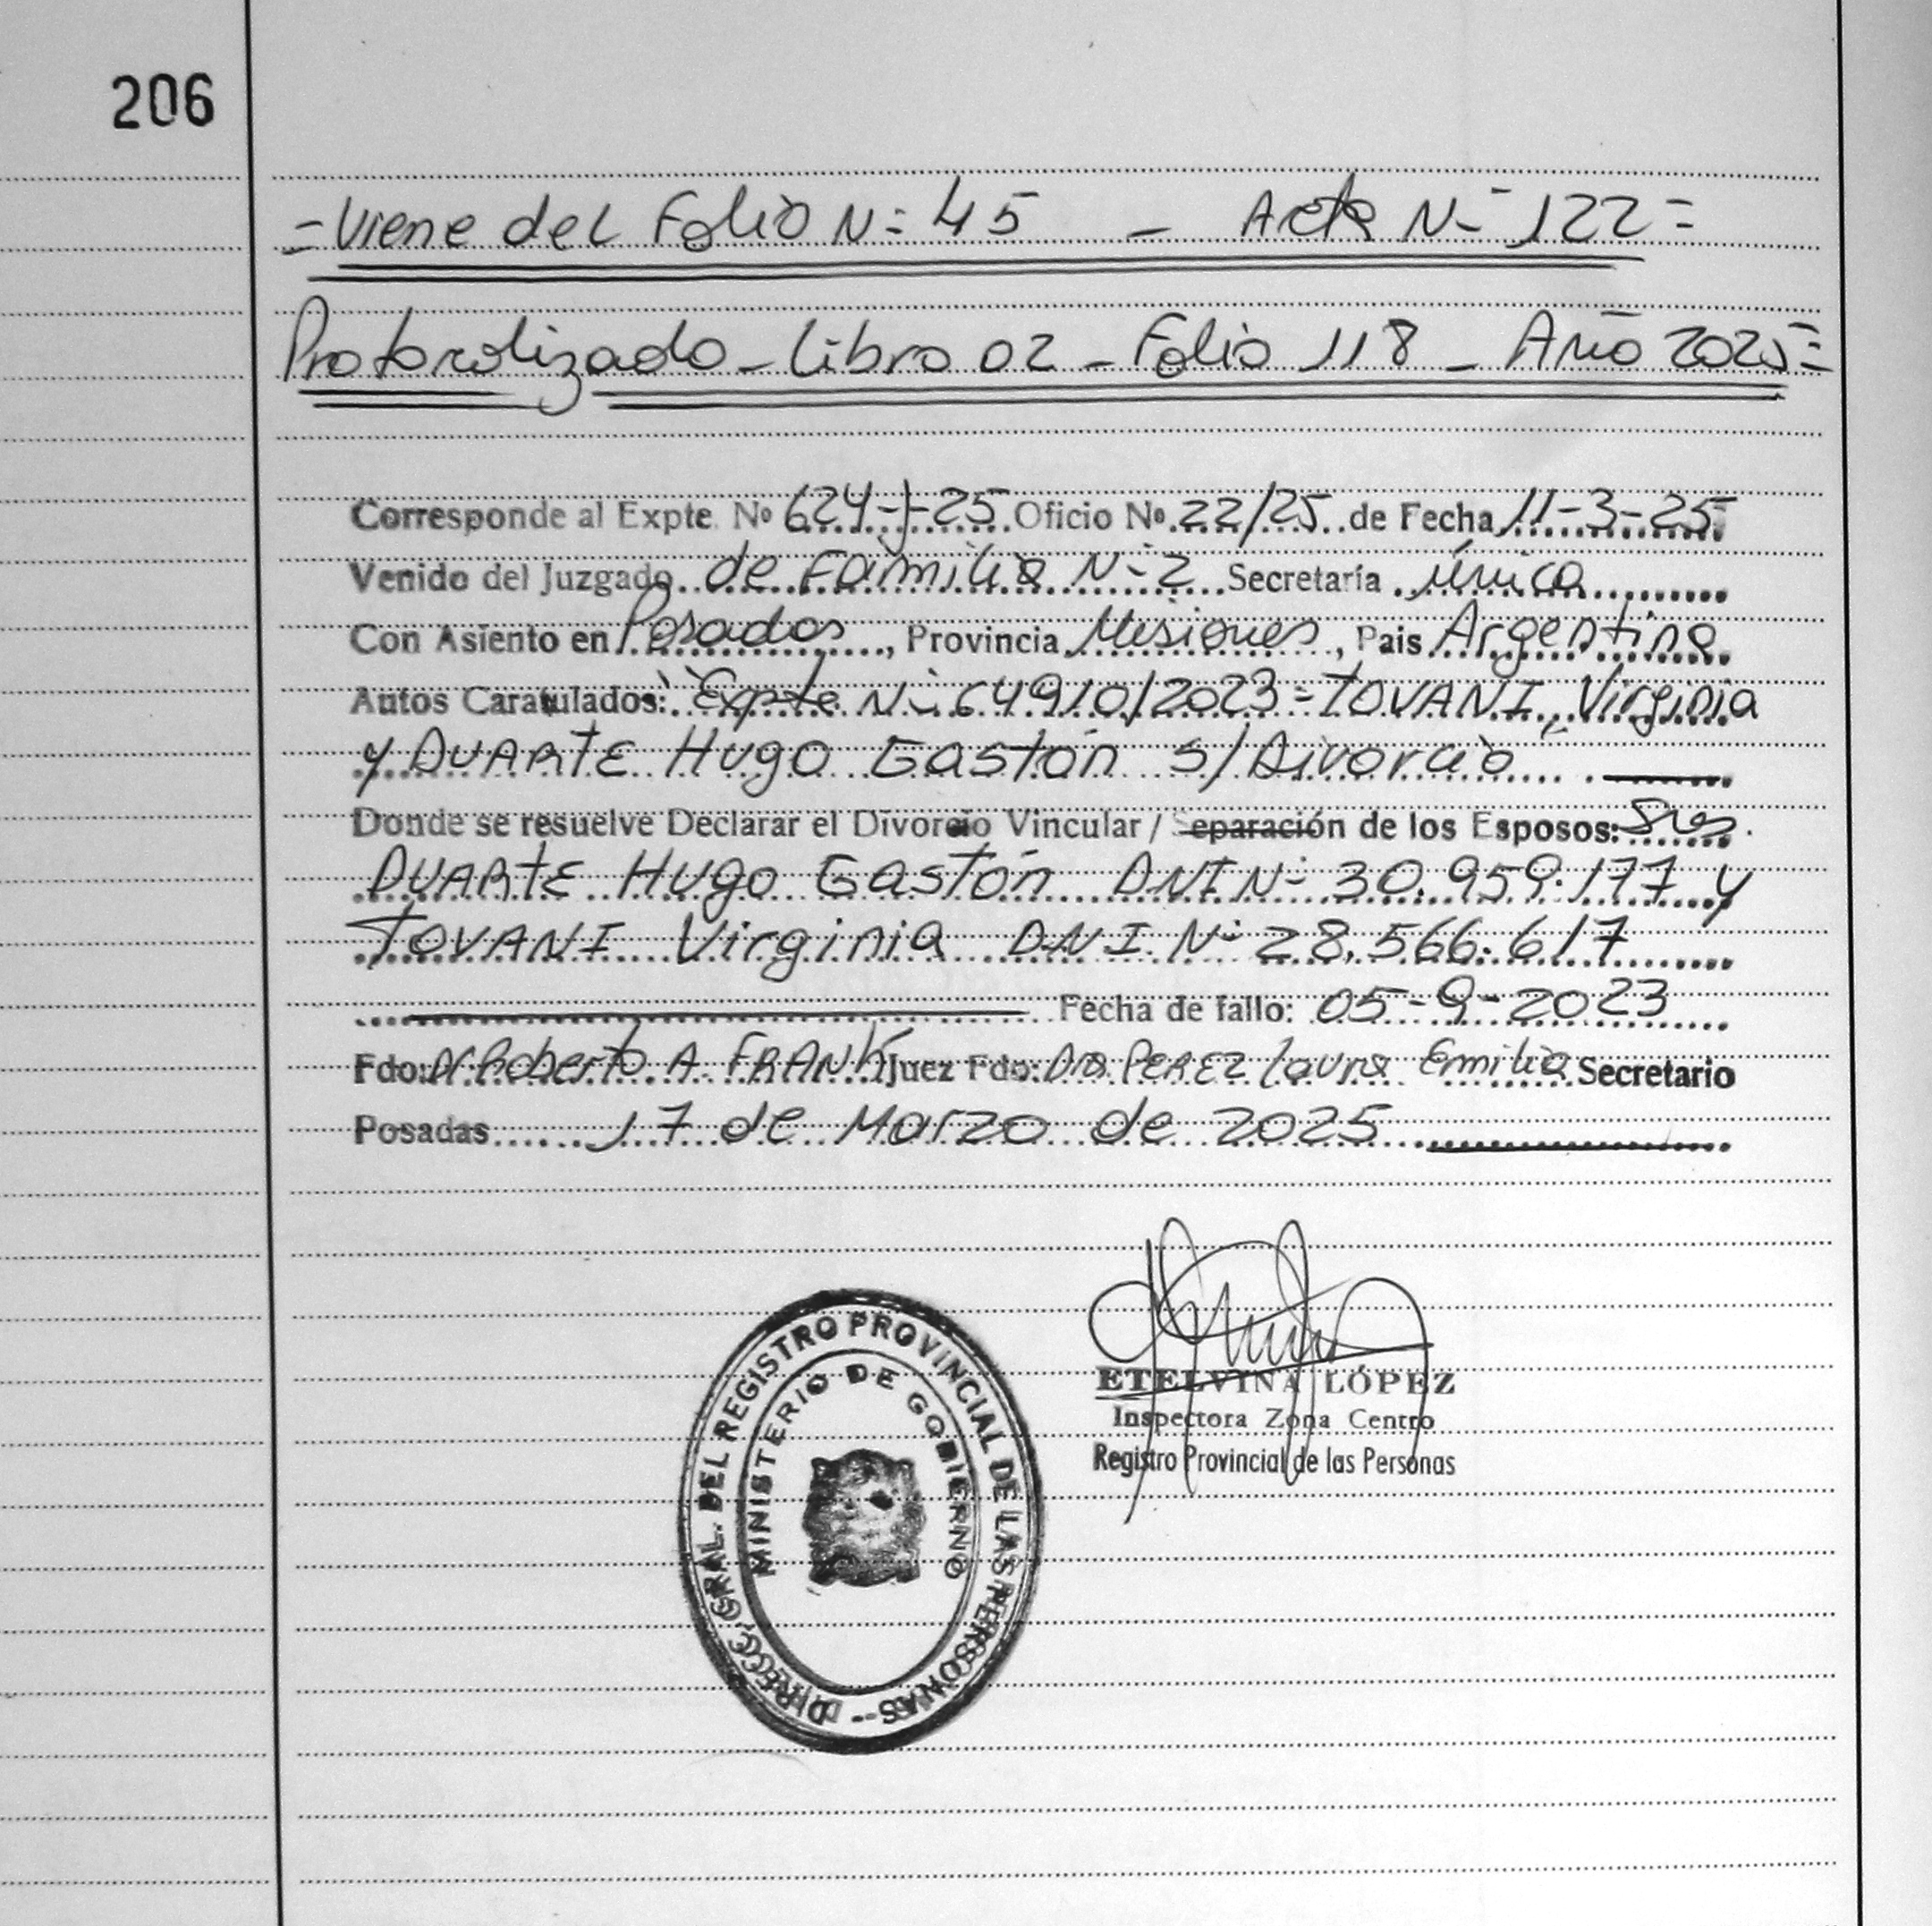 206
= Viene del Folio N: 45 - Acta N- 122 =
Protocolizado - Libro 02 - Folio 118 - Año 2025 =
Corresponde al Expte. Nº 624-J-25 Oficio Nº 22/25 de Fecha 11-3-25
Venido del Juzgado de Familia N-2 Secretaría única
Con Asiento en Posadas, Provincia Misiones, Pais Argentina
Autos Caratulados: Expte N- 64910/2023 = TOVANI, Virginia
y DUARTE Hugo Gastón s/Divorcio
Donde se resuelve Declarar el Divorcio Vincular / Separación de los Esposos: Sres.
DUARTE Hugo Gastón DNI N- 30.959.177 y
TOVANI Virginia DNI N- 28.566.617
Fecha de fallo: 05-9-2023
Fdo: Dr Roberto A. FRANK Juez Fdo: Dra PEREZ Laura Emilia Secretario
Posadas 17 de Marzo de 2025
ETELVINA LÓPEZ
Inspectora Zona Centro
Registro Provincial de las Personas
DIRECC. GRAL. DEL REGISTRO PROVINCIAL DE LAS PERSONAS -
MINISTERIO DE GOBIERNO